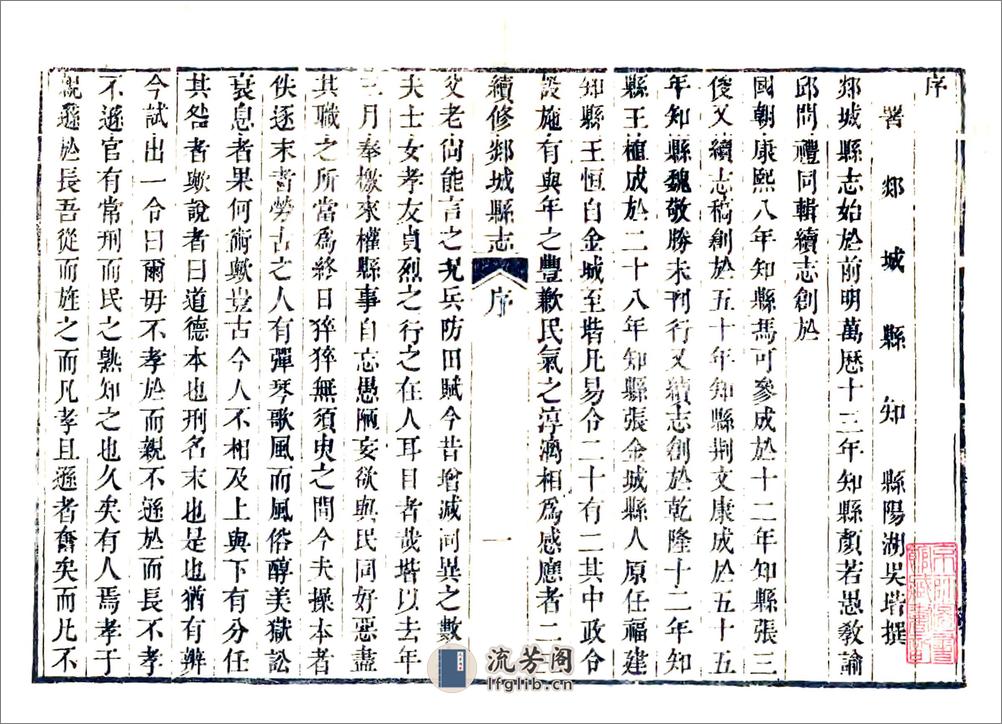 序
署郯城縣知縣陽湖吳堦撰
郯城縣志始於前明萬曆十三年知縣顏若愚敎諭
邱問禮同輯續志創於
國朝康熙八年知縣馮可參成於十二年知縣張三
俊又續志稿創於五十年知縣荆文康成於五十五
年知縣魏敬勝未刊行又續志創於乾隆十二年知
縣王植成於二十八年知縣張金城縣人原任福建
知縣王恒自金城至堦凡易令二十有二其中政令
設施有與年之豐歉民氣之淳漓相爲感應者二三
續修郯城縣志
序
一
父老尙能言之況兵防田賦今昔增减同異之數士
夫士女孝友貞烈之行之在人耳目者哉堦以去年
三月奉檄來權縣事自忘愚陋妄欲與民同好惡盡
其職之所當爲終日猝猝無須臾之間今夫操本者
佚逐末者勞古之人有彈琴歌風而風俗醇美獄訟
衰息者果何術歟豈古今人不相及上與下有分任
其咎者歟說者曰道德本也刑名末也是也猶有辨
今試出一令曰爾毋不孝於而親不遜於而長不孝
不遜官有常刑而民之熟知之也久矣有人焉孝于
親遜於長吾從而旌之而凡孝且遜者奮矣而凡不
流芳阁
lfglib.cn